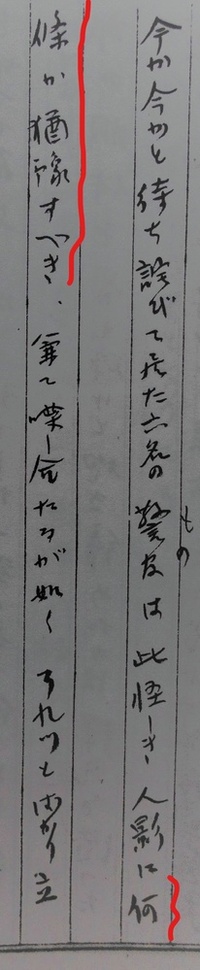 今か今かと待ち詫びて居た六名の警友は此怪しき人影に何
もの
條か猶豫すへき、兼て喋し合たるが如く それツとはかり立